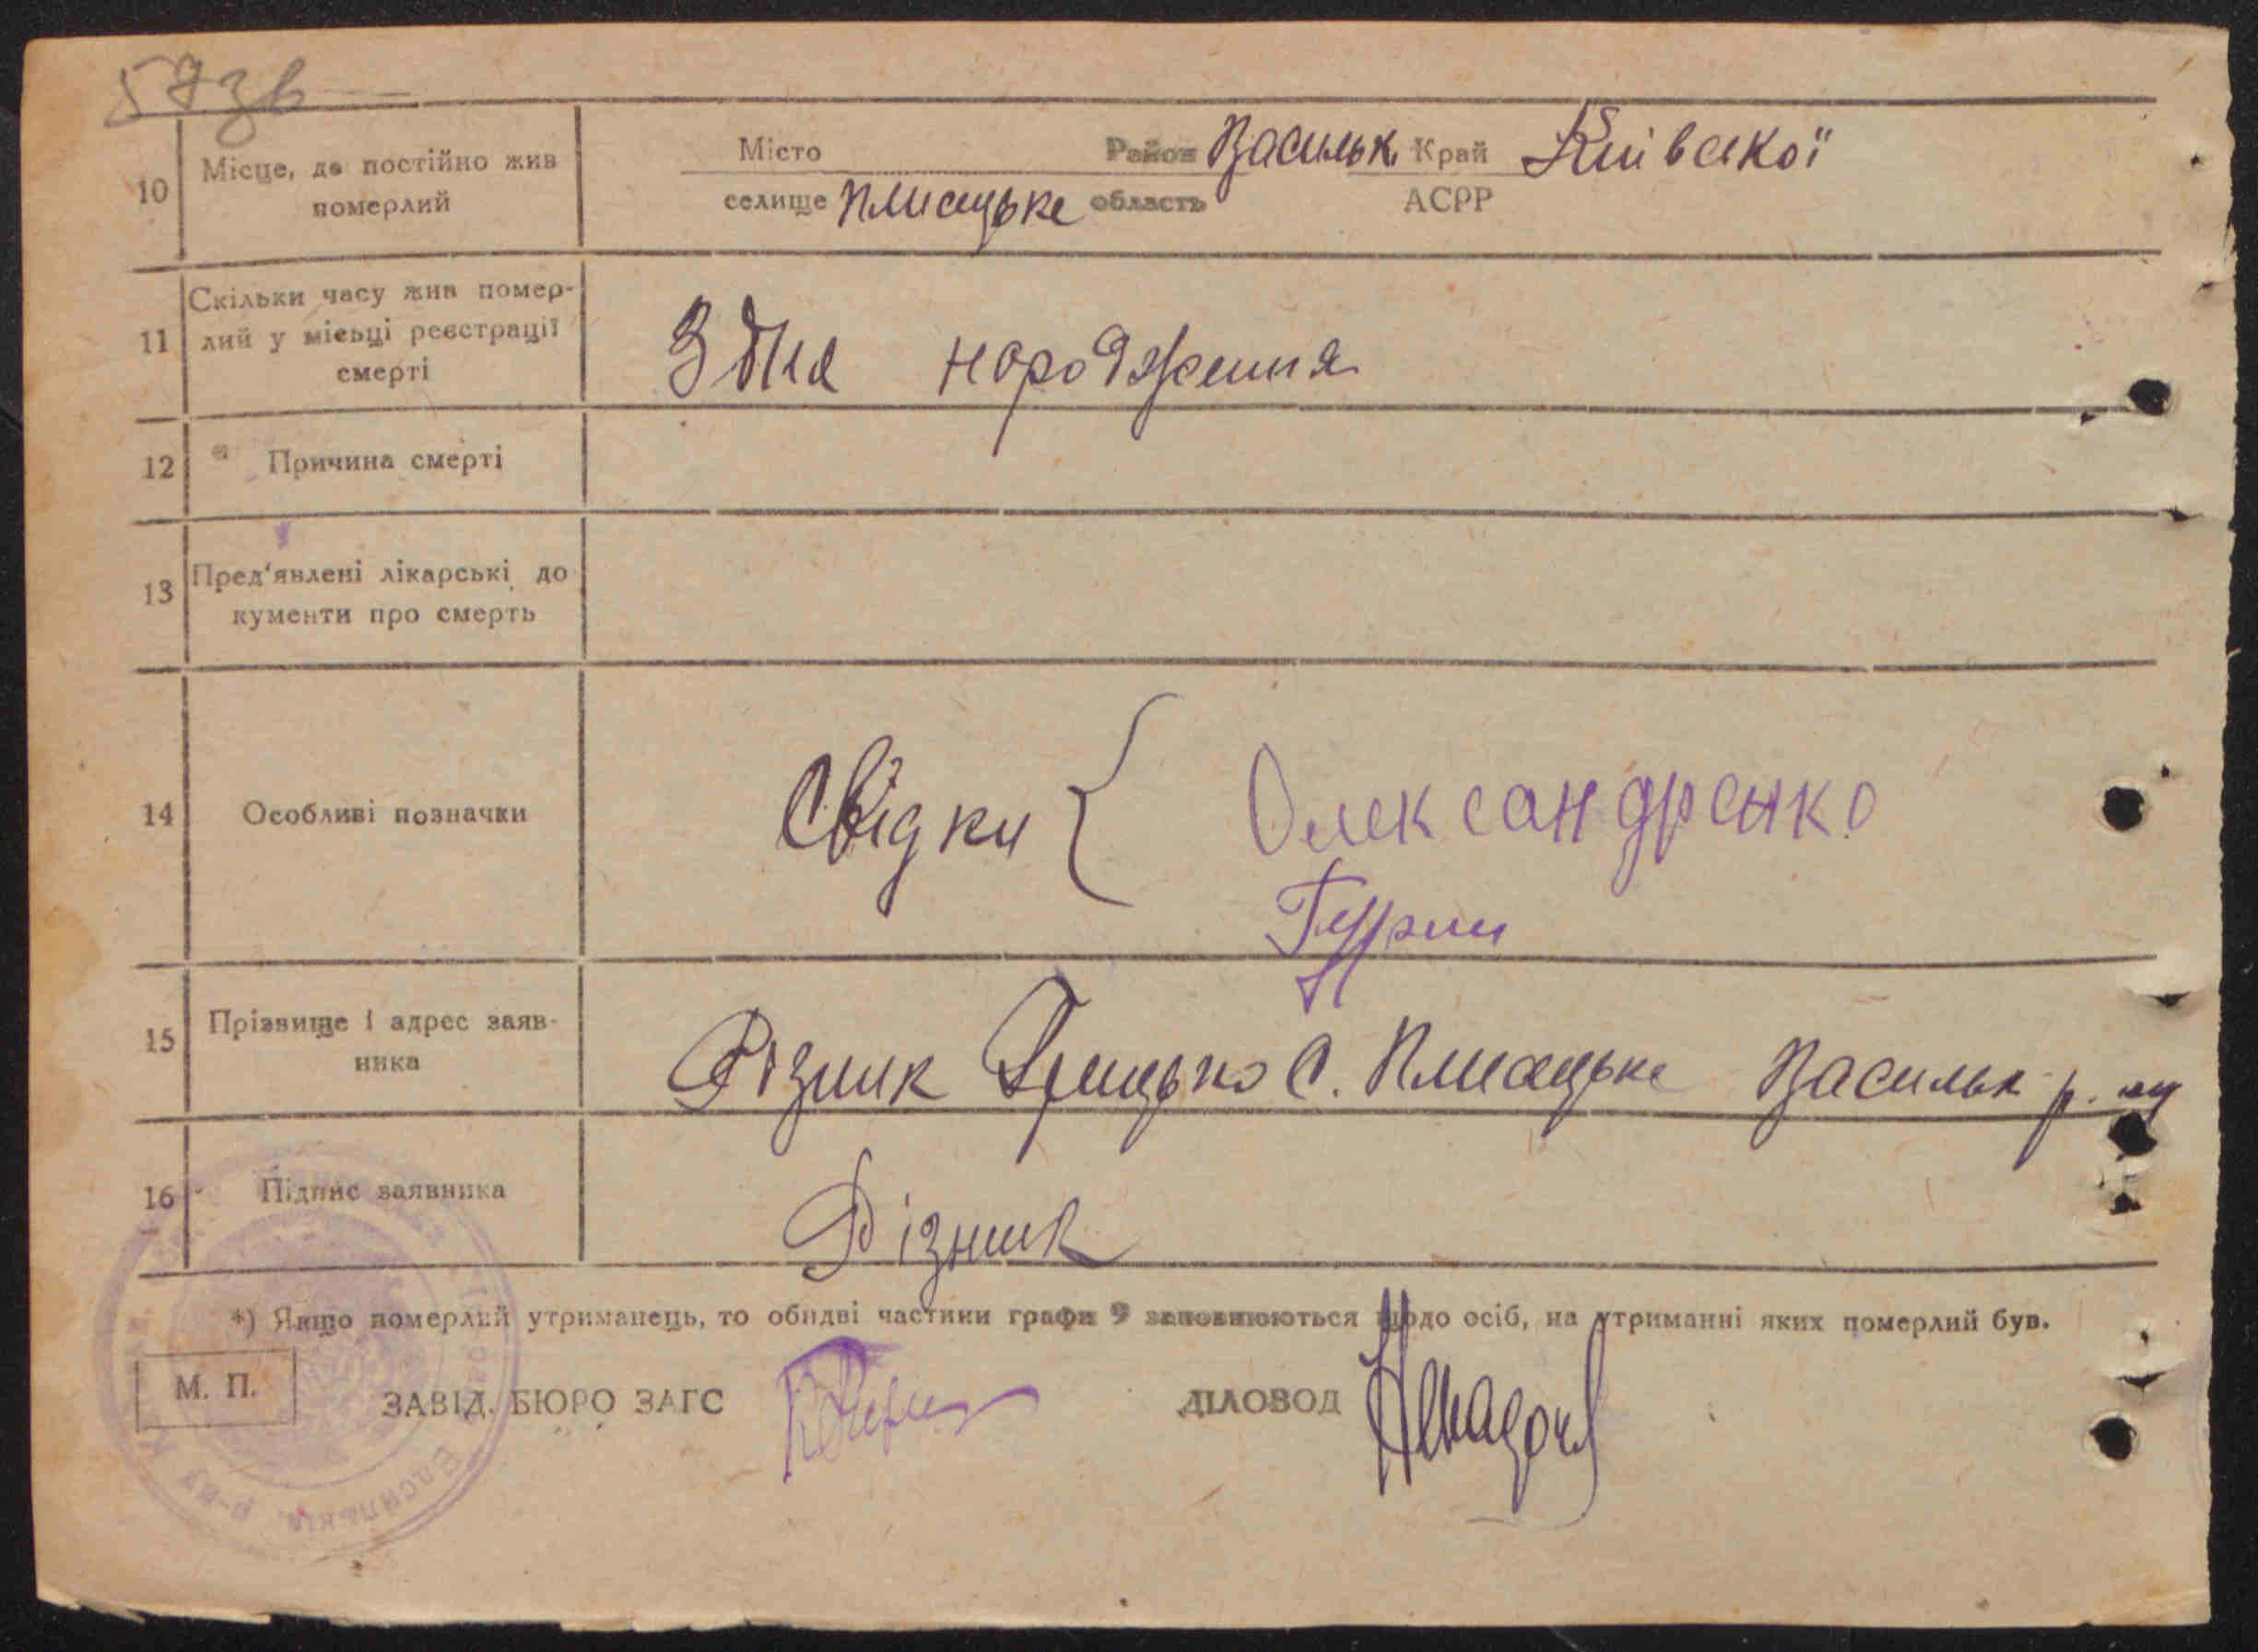 573в
10 Місце, де постійно жив померлий
Місто Район Васильк. Край Київської
селище Плисецьке область АСРР
11 Скільки часу жив помер-
лий у місьці реєстрації
смерті
З дня народження
12 * Причина смерті
13 Пред'явлені лікарські до
кументи про смерть
14 Особливі позначки
Свідки { Олександренко
Гурин
15 Прізвище і адрес заяв-
ника
Різник Грицько С. Плисецьке Васильк р.
16 Підпис заявника
Різник
*) Якщо померлий утриманець, то обидві частини графи 9 заповнюються щодо осіб, на утриманні яких померлий був.
М. П. ЗАВІД. БЮРО ЗАГС ДІЛОВОД
Васильків. р-ну